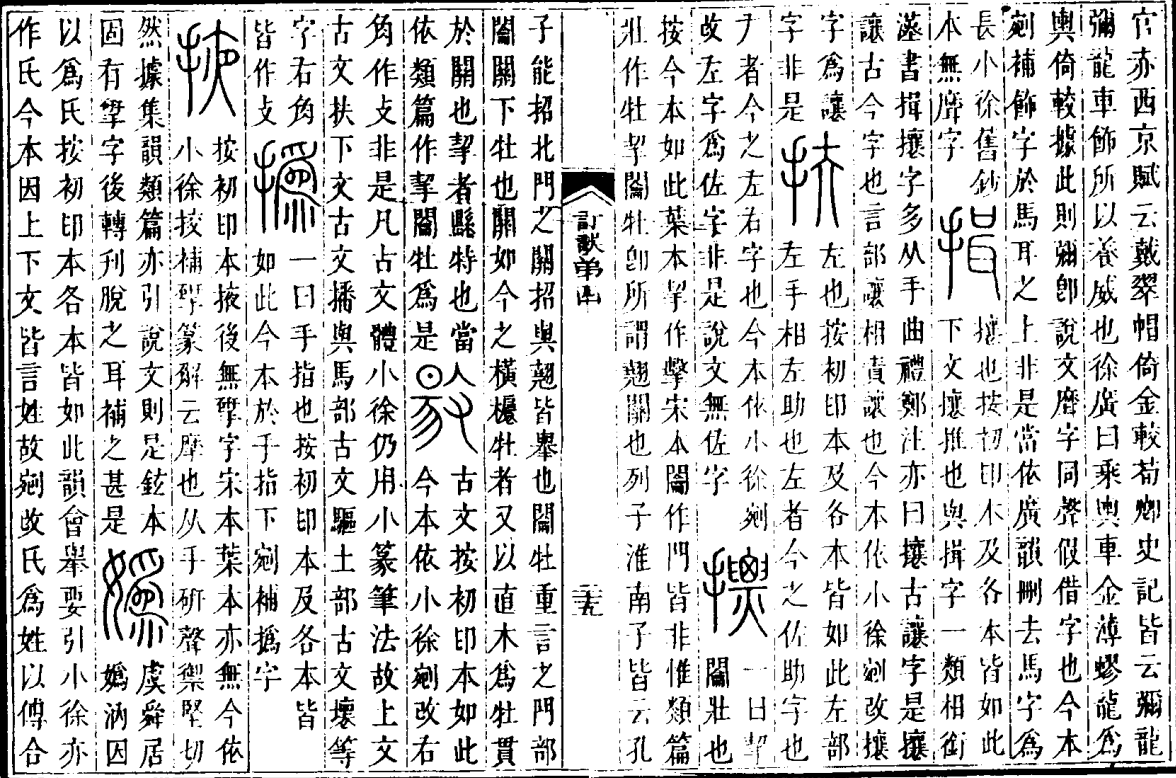 官赤西京賦云戴翠帽倚金較荀卿史記皆云彌龍
彌龍車飾所以養威也徐廣曰乘輿車金薄繆龍爲
輿倚較據此則彌卽說文䌕字同聲假借字也今本
剜補飾字於馬耳之上非是當依廣韻刪去馬字爲
長小徐舊鈔
本無䌕字
揖
攘也按初印本及各本皆如此
下文攘推也與揖字一類相銜
蓋書揖攘字多从手曲禮鄭注亦曰攘古讓字是攘
讓古今字也言部讓相責讓也今本依小徐剜改攘
字爲讓
字非是
扶
左也按初印本及各本皆如此左部
左手相左助也左者今之佐助字也
𠂇者今之左右字也今本依小徐剜
改左字爲佐字非是說文無佐字
摽
一曰挈
闔壯也
按今本如此葉本挈作擊宋本闔作門皆非惟類篇
壯作牡挈闔牡卽所謂翹關也列子淮南子皆云孔
訂說弟四
子能招北門之關招與翹皆舉也闔牡重言之門部
闔關下牡也關如今之橫櫎牡者又以直木爲牡貫
於關也挈者縣特也當
依類篇作挈闔牡爲是
敭
古文按初印本如此
今本依小徐剜改右
角作攴非是凡古文體小徐仍用小篆筆法故上文
古文扶下文古文播與馬部古文驅土部古文壞等
字右角
皆作攴
撝
一曰手指也按初印本及各本皆
如此今本於手指下剜補撝字
掖
按初印本掖後無揅字宋本葉本亦無今依
小徐按補揅篆解云摩也从手硏聲禦堅切
然據集韻類篇亦引說文則是鉉本
固有揅字後轉刊脫之耳補之甚是
嬀
虞舜居
嬀汭因
以爲氏按初印本各本皆如此韻會舉要引小徐亦
作氏今本因上下文皆言姓故剜改氏爲姓以傅合